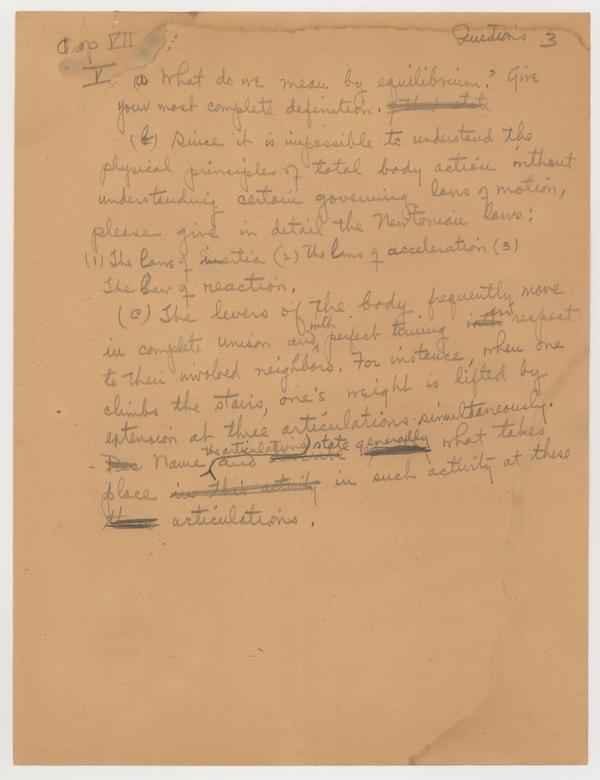 Chap VII Questions 3
V. (a) What do we mean by equilibrium? Give
your most complete definition.
(b) Since it is impossible to understand the
physical principles of total body action without
understanding certain governing laws of motion,
please give in detail the Newtonian laws:
(1) The laws of inertia (2) The laws of acceleration (3)
The law of reaction.
(c) The levers of the body frequently move
in complete unison and with perfect timing in respect
to their involved neighbors. For instance, when one
climbs the stairs, one's weight is lifted by
extension at three articulations simultaneously.
Name the articulations and state generally what takes
place in this activity in such activity at these
articulations.